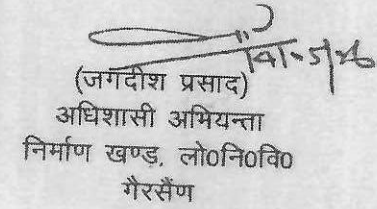 (जगदीश प्रसाद)
अधिशासी अभियन्ता
निर्माण खण्ड, लो०नि०वि०
गैरसैंण